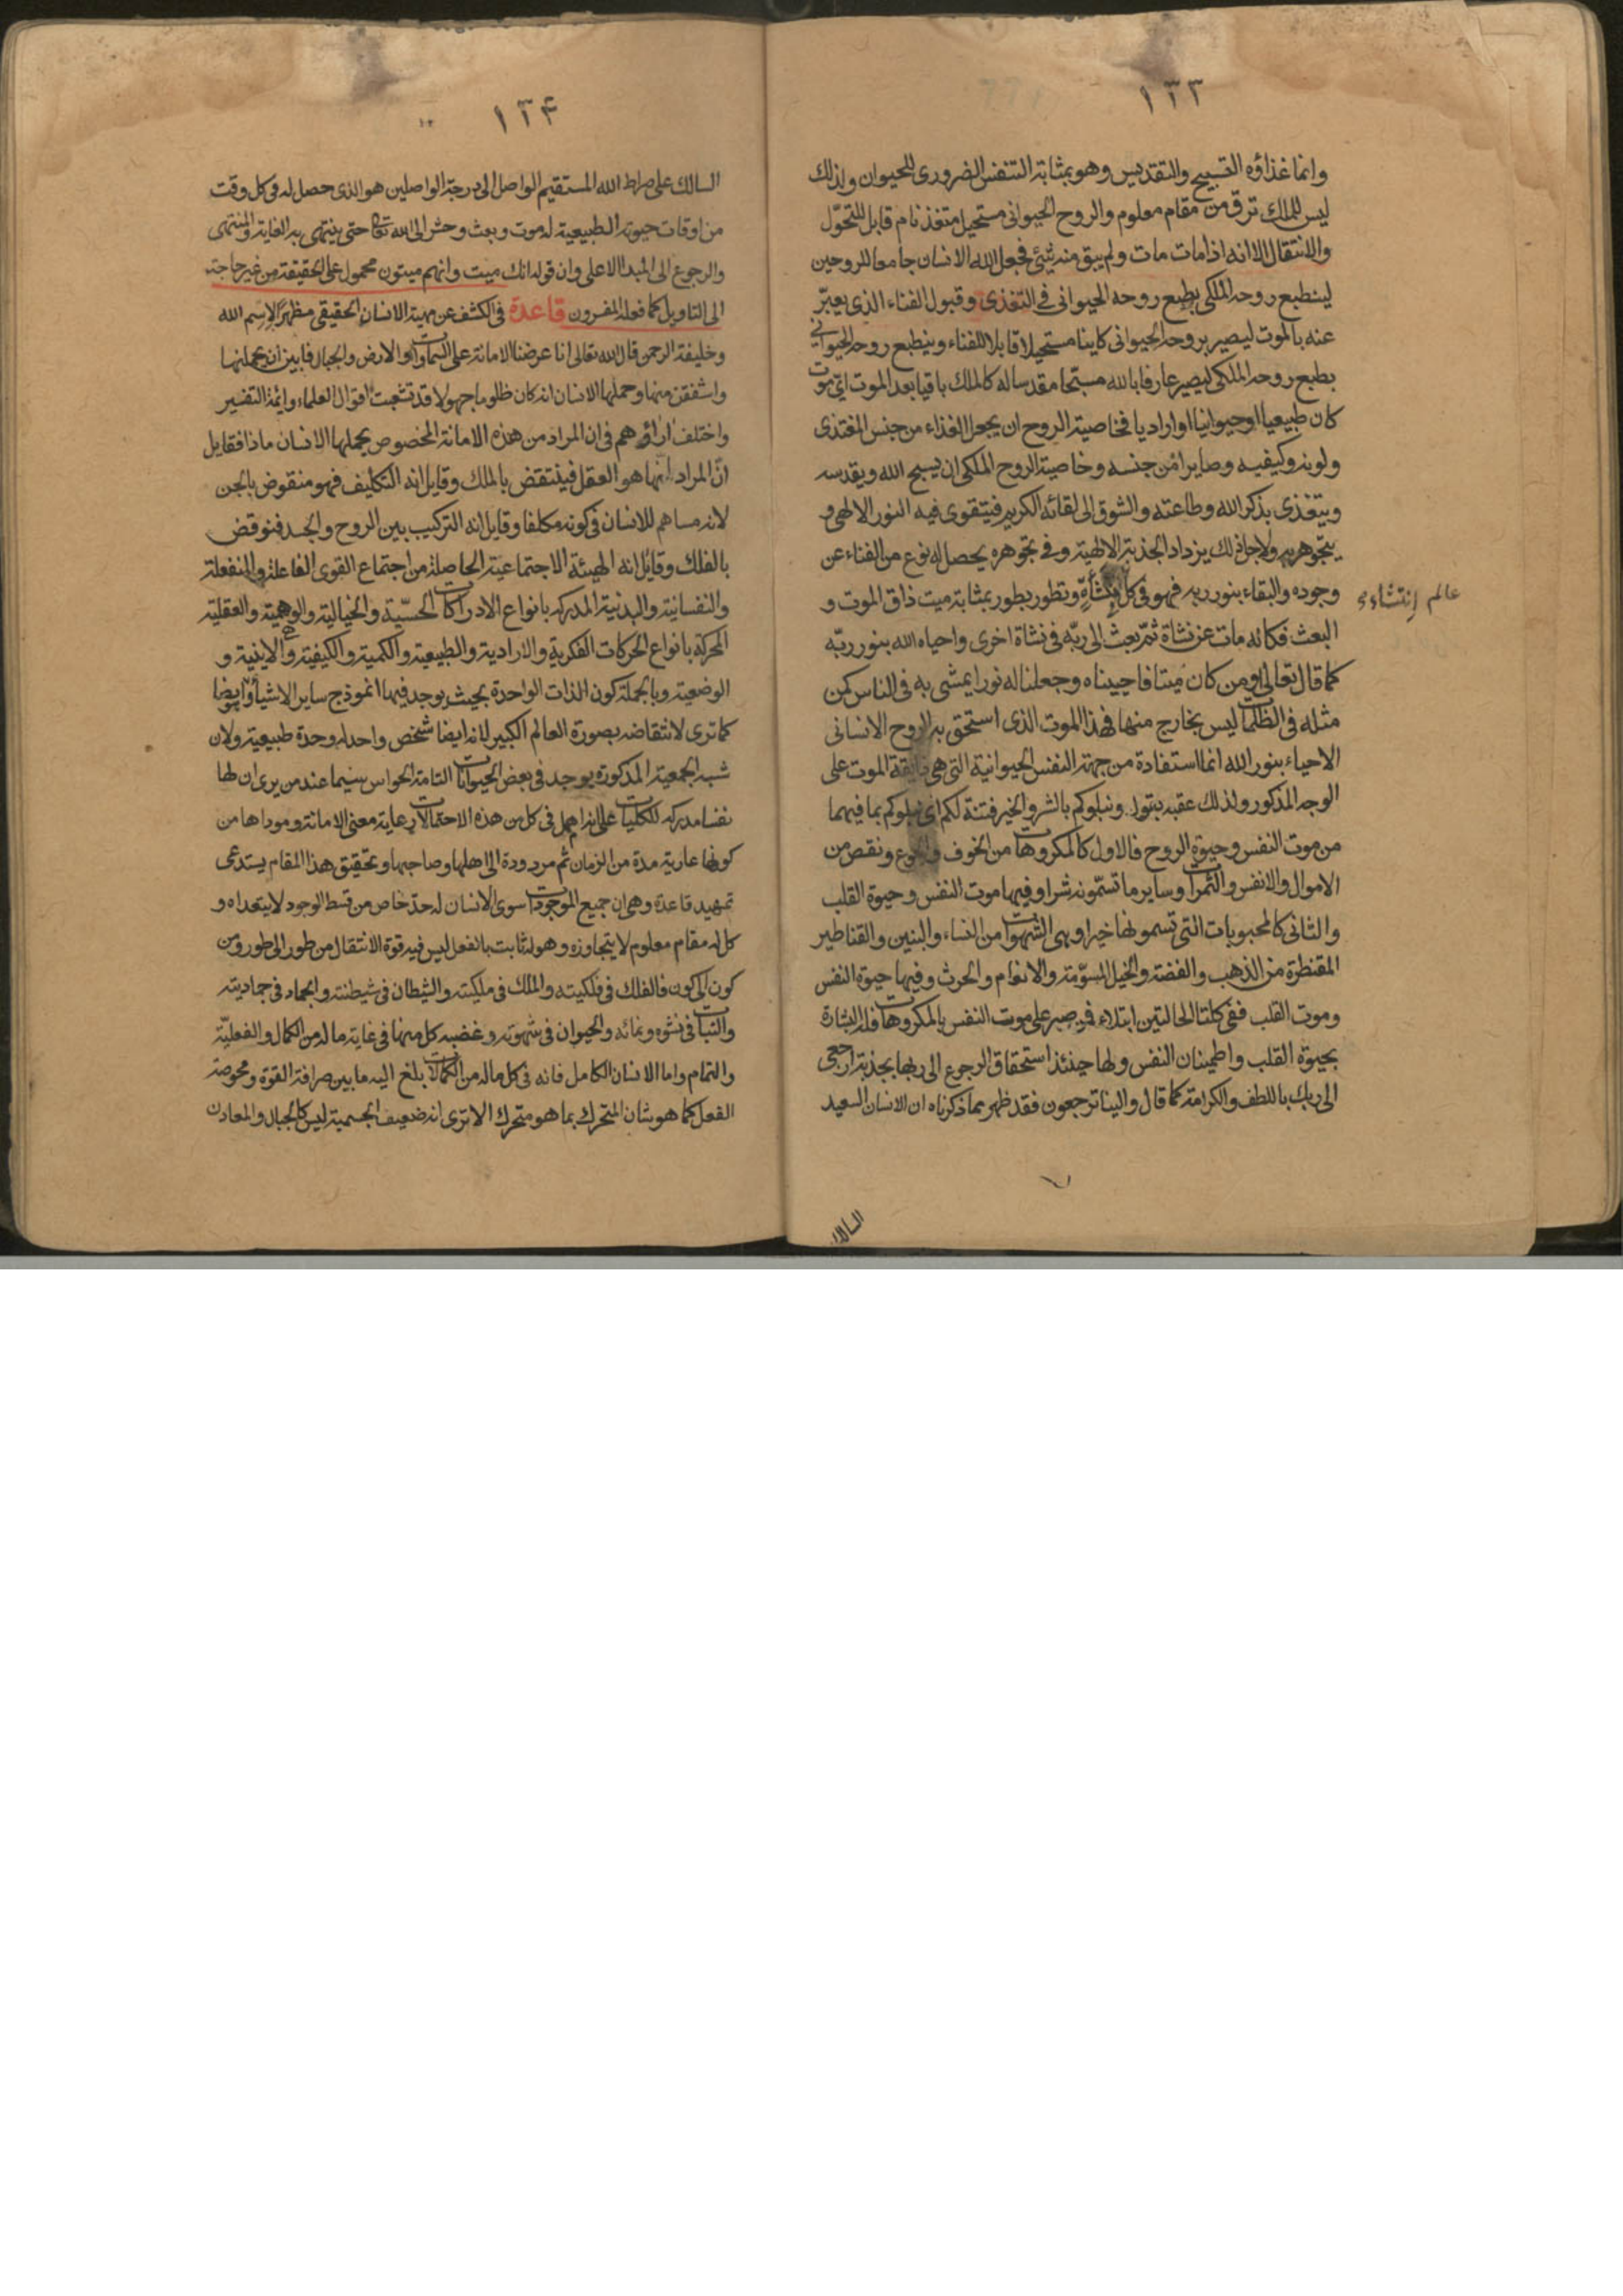 ١٣٣
وانما غذاؤه التسبيح والتقديس وهو بمثابة التنفس الضرورى للحيوان ولذلك
ليس للملك ترق من مقام معلوم والروح الحيوانى مستحيل متغذ نام قابل للتحوّل
والانتقال الا انه اذا مات مات ولم يبق منه شئ فجعل الله الانسان جامعا للروحين
لينطبع روحه الملكى بطبع روحه الحيوانى في التغذى وقبول الفناء الذى يعبّر
عنه بالموت ليصير بروحه الحيوانى كاينا مستحيلا قابلا للفناء وينطبع روحه الحيوانى
بطبع روحه الملكى ليصير عارفا بالله مسبّحا مقدسا له كالملك باقيا بعد الموت اىّ موت
كان طبيعيا او حيوانيا او اراديا فخاصية الروح ان يجعل الغذاء من جنس المغتذى
ولونه وكيفيه وصايرا من جنسه وخاصية الروح الملكى ان يسبح الله ويقدسه
ويتغذى بذكر الله وطاعته والشوق الى لقائه الكريم فيتقوى فيه النور الالهى و
يتجوهر به ولاجل ذلك يزداد الجذبة الالهية وفى تجوهره يحصل له نوع من الفناء عن
وجوده والبقاء بنور ربه فهو فى كل نشأة وتطور بطور بمثابة ميت ذاق الموت و
عالم انتشاءى
البعث فكانه مات عن نشاة ثمّ بعث الى ربّه فى نشاة اخرى واحياه الله بنور ربّه
كما قال تعالى اومن كان ميتا فاحييناه وجعلنا له نورا يمشى به فى الناس كمن
مثله فى الظلمات ليس بخارج منها فهذا الموت الذى استحق به الروح الانسانى
الاحياء بنور الله انما استفادة من جهة النفس الحيوانية التى هى ذايقة الموت على
الوجه المذكور ولذلك عقبه بقوله ونبلوكم بالشر والخير فتنة لكم اى نبلوكم بما فيهما
من موت النفس وحيوة الروح فالاول كالمكروهات من الخوف والجوع ونقص من
الاموال والانفس والثمرات وساير ما تسمّونه شرا وفيها موت النفس وحيوة القلب
والثانى كالمحبوبات التى تسمونها خيرا وهى الشهوات من النساء والبنين والقناطير
المقنطرة من الذهب والفضة والخيل المسوّمة والانعام والحرث وفيها حيوة النفس
وموت القلب ففى كلتا الحالتين ابتلاء فمن صبر على موت النفس بالمكروهات فله البشارة
بحيوة القلب واطمينان النفس ولها حينئذ استحقاق الرجوع الى ربها بجذبة ارجعى
الى ربك باللطف والكرامة كما قال والينا ترجعون فقد ظهر بما ذكرناه ان الانسان السعيد
السالك
١٣۴
السالك على صراط الله المستقيم الواصل الى درجة الواصلين هو الذى حصل له فى كل وقت
من اوقات حيوته الطبيعية له موت وبعث وحشر الى الله تعالى حتى ينتهى به الغاية والمنتهى
والرجوع الى المبدا الاعلى وان قوله انك ميت وانهم ميتون محمول على الحقيقة من غير حاجة
الى التاويل كما فعله المفسرون قاعدة فى الكشف عن مهية الانسان الحقيقى مظهرا لاسم الله
وخليفة الرحمن قال الله تعالى انا عرضنا الامانة على السماوات والارض والجبال فابين ان يحملنها
واشفقن منها وحملها الانسان انه كان ظلوما جهولا قد تشعبت اقوال العلماء وائمة التفسير
واختلف اراؤهم فى ان المراد من هذه الامانة المخصوص بحملها الانسان ماذا فقايل
انّ المراد انها هو العقل فينتقض بالملك وقايل انه التكليف فهو منقوض بالجن
لانه مساهم للانسان فى كونه مكلفا وقايل انه التركيب بين الروح والجسد فنوقض
بالفلك وقايل انه الهيئة الاجتماعية الحاصلة من اجتماع القوى الفاعلة والمنفعلة
والنفسانية والبدنية المدركه بانواع الادراكات الحسّية والخيالية والوهمية والعقلية
المحركة بانواع الحركات الفكرية والارادية والطبيعية والكمية والكيفية والاينية و
الوضعية وبالجملة كون الذات الواحدة بحيث يوجد فيها انموذج ساير الاشياء وايضا
كما ترى لانتقاضه بصورة العالم الكبير لانه ايضا شخص واحد له وحدة طبيعية ولان
شبه الجمعية المذكورة يوجد فى بعض الحيوانات التامة الحواس سيما عند من يرى ان لها
نفسا مدركه للكليات على انه اهمل فى كل من هذه الاحتمالات رعاية معنى الامانة ومؤداها من
كونها عارية مدة من الزمان ثم مردودة الى اهلها وصاحبها وتحقيق هذا المقام يستدعى
تمهيد قاعدة وهى ان جميع الموجودات سوى الانسان له حدّ خاص من قسط الوجود لا يتعداه و
كل له مقام معلوم لا يتجاوزه وهو له ثابت بالفعل ليس فيه قوة الانتقال من طور الى طور ومن
كون الى كون فالفلك فى فلكيته والملك فى ملكيته والشطان فى شيطنته والجماد فى جماديته
والنبات فى نشوه ونمائه والحيوان فى شهوته وغضبه كل منها فى غاية ماله من الكمال والفعليّة
والتمام واما الانسان الكامل فانه فى كل ماله من الكمالات بلغ اليه ما بين صرافة القوة ومحوضة
الفعل كما هو شان المتحرك بما هو متحرك الا ترى انه ضعيف الجسمية ليس كالجبال والمعادن